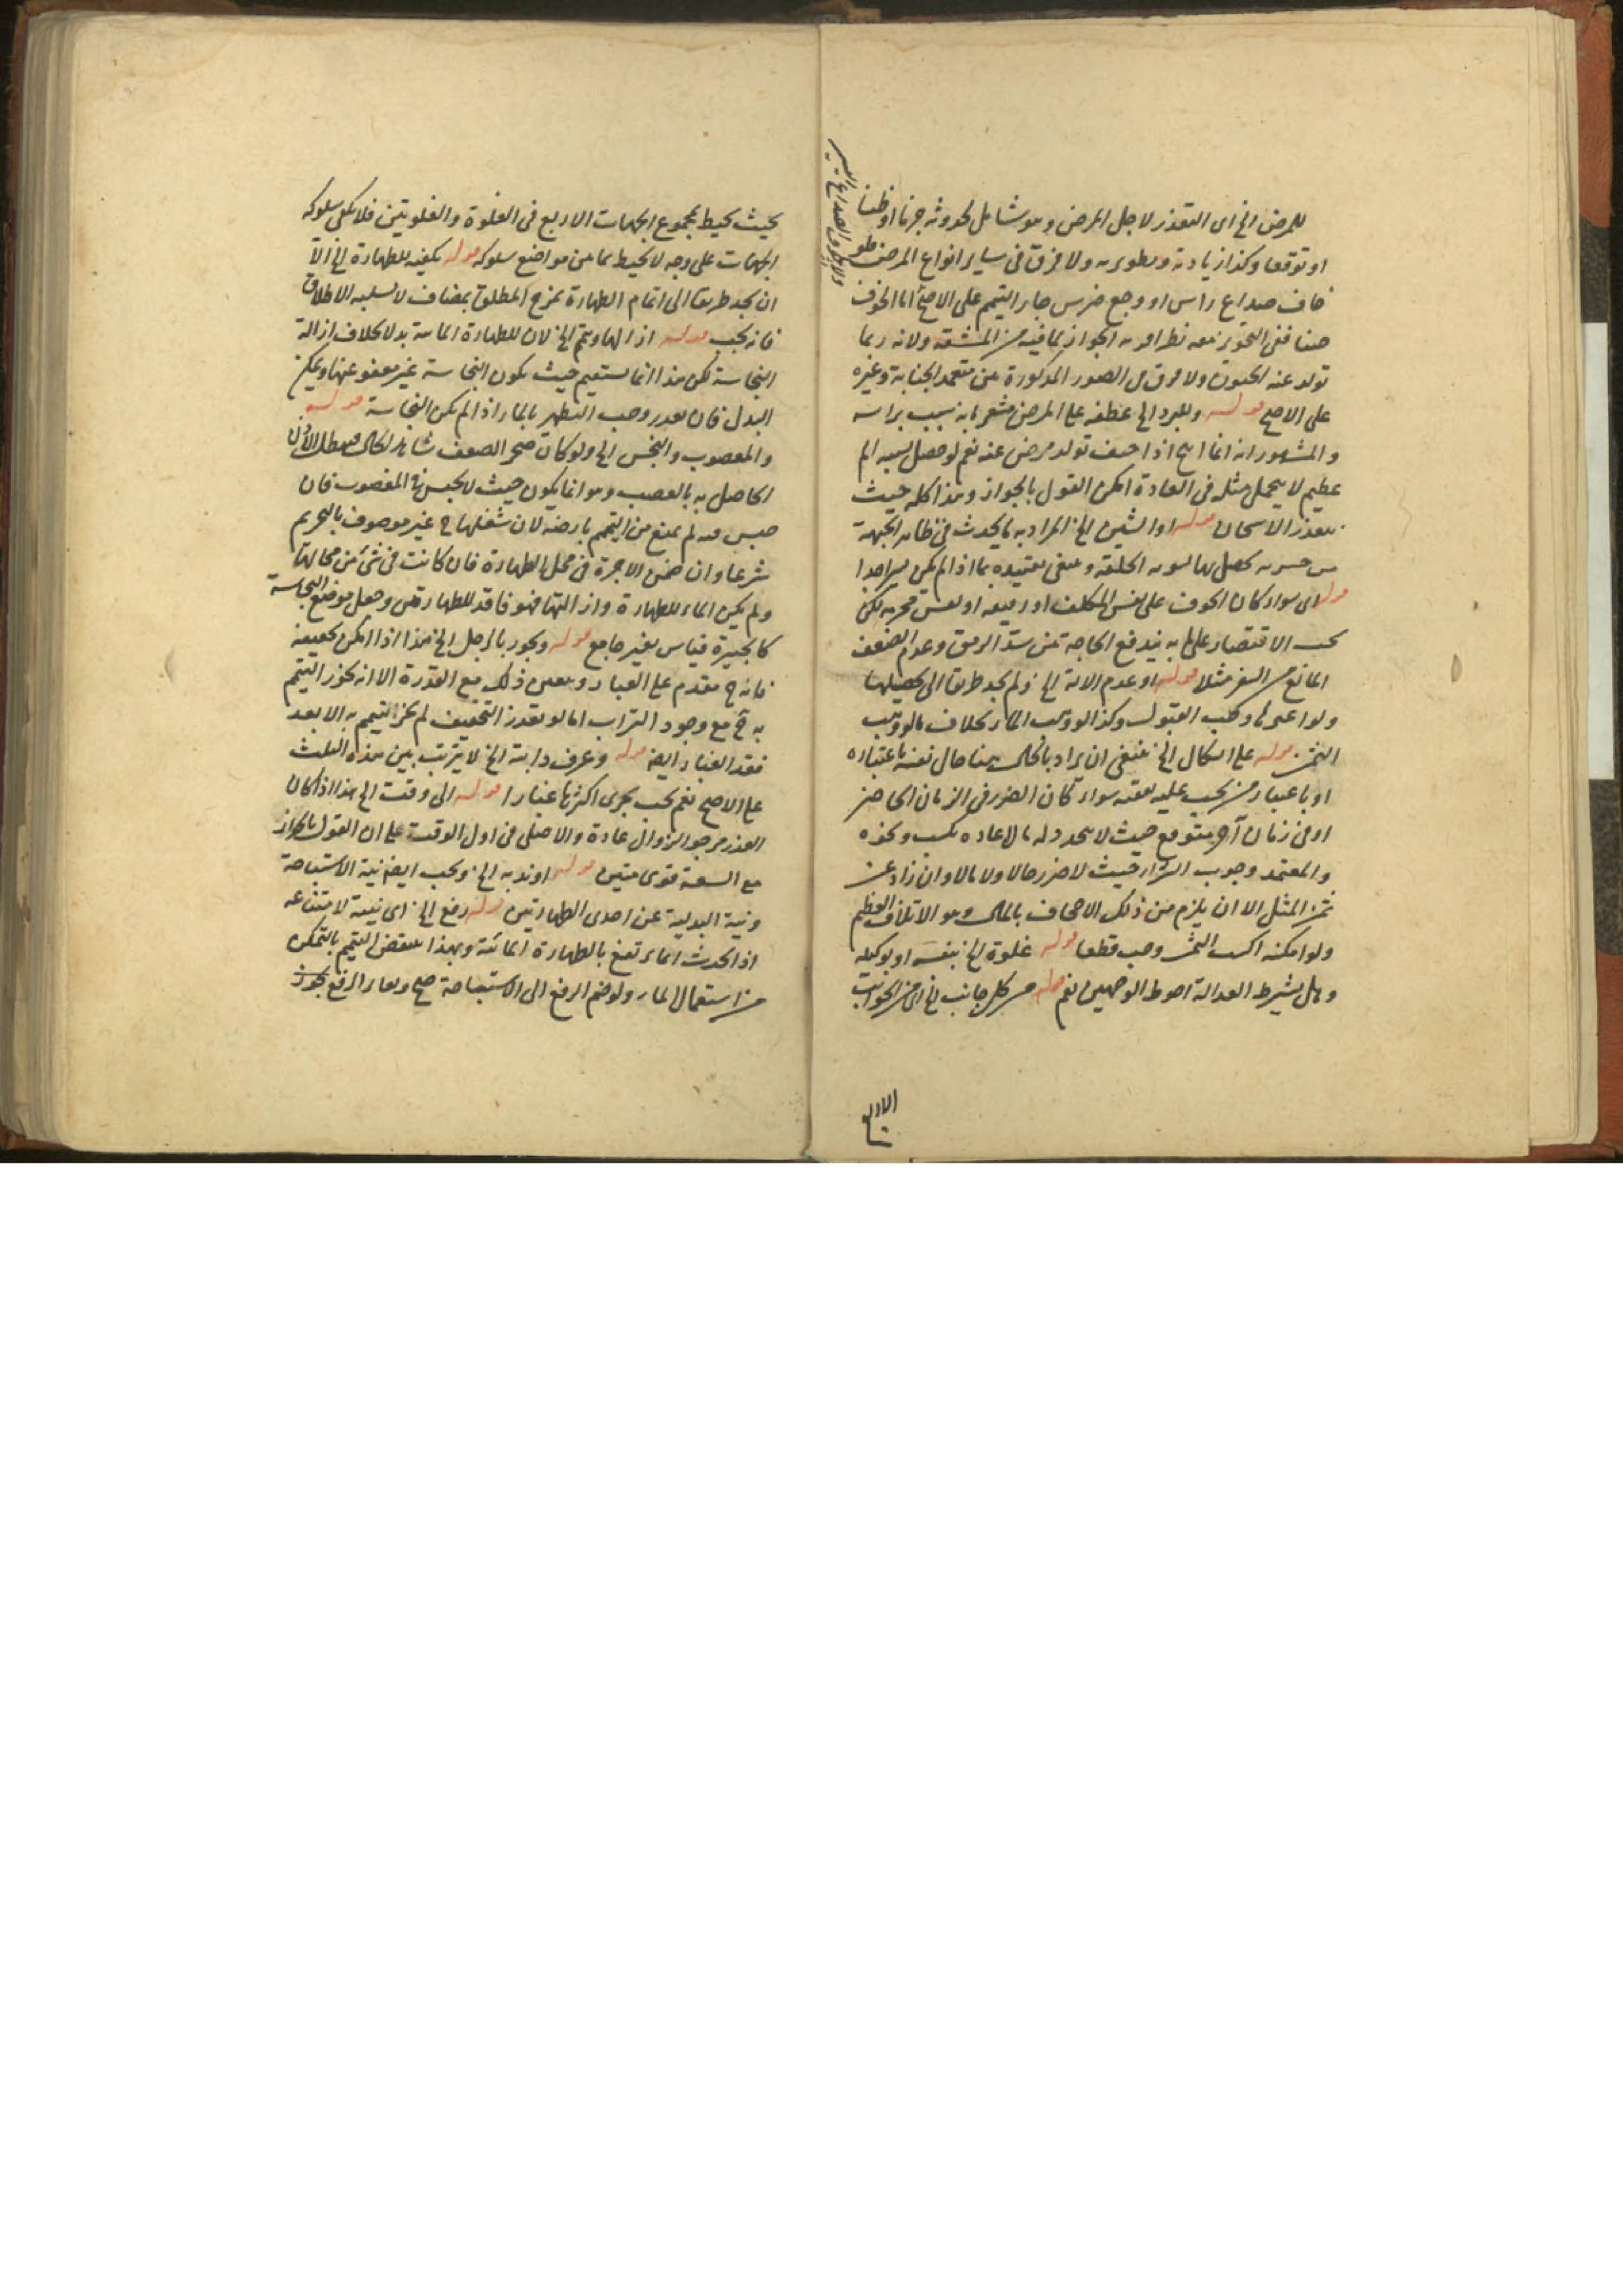 للمرض الخ اى التعذر لاجل المرض وهو شامل لحدوثه جزما او ظنا
او توقعا وكذا زيادته ولا فرق فى ساير انواع المرض فلو
خاف صداع راس او وجع ضرس جاز التيمم على الاصح اما الخوف
ففى التجويز معه نظر الجواز لما فيه من المشقة ولانه ربما
تولد عنه الجنون ولا فرق فى الصور المذكورة بين متعمد الجنابة وغيره
على الاصح قوله وللبرد الخ عطفه على المرض مشعر بانه سبب براسه
والمشهور انه انما اذا خيف تولد مرض عنه نعم لو حصل بسببه الم
عظيم لا يتحمل مثله فى العادة امكن القول بالجواز وهذا كله حيث
يتعذر الاسخان قوله او الشين الخ المراد به ما يحدث فى ظاهر الجلد
من يحصل بها الخلقة وينبغى تقييده بما اذا لم يكن يسيرا جدا
قوله اى سواء كان الخوف على نفس المكلف او رفيقه او نفس محترمه لكن
يجب الاقتصار على ما به يندفع الحاجة من سد الرمق وعدم الضعف
المانع من السفر مثلا قوله او عدم الالة الخ ولم يجد طريقا الى تحصيلها
ولو اعيرها وجب القبول وكذا لو وهب الماء بخلاف ما لو وهب
الثمن قوله على الحال الخ ينبغى ان يراد بالحال هنا حال نفسه باعتباره
او باعتبار من يجب عليه نفقته سواء كان الضرر فى الزمان الحاضر
او فى زمان آخر متوقع حيث لا يتجدد له مال عادة بكسب ونحوه
والمعتمد وجوب الشراء حيث لا ضرر حالا ولا مالا وان زاد عن
ثمن المثل الا ان يلزم من ذلك الاجحاف بالمال وهو الاتلاف العظيم
ولو امكنه اكتساب الثمن وجب قطعا قوله غلوة الخ بنفسه او بوكيله
وهل يشترط العدالة احوط الوجهين نعم قوله من كل جانب الخ اى من الجوانب
الاربع
بحيث يحيط بمجموع الجهات الاربع فى الغلوة والغلوتين فلا يكفى سلوكه
الجهات على وجه لا يحيط بما بين مواضع سلوكه قوله يكفيه للطهارة الخ الا
ان يجد طريقا الى اتمام الطهارة بمزج المطلق بمضاف لا يسلبه الاطلاق
فانه يجب قوله ازالها وتيمم الخ لان للطهارة المائية بدلا بخلاف ازالة
النجاسة لكن هذا انما يستقيم حيث يكون النجاسة غير معفو عنها ويمكن
البدل فان تعذر وجب التطهر بالماء اذا لم يكن النجاسة قوله
والمغصوب والنجس الخ ولو كان
الحاصل به بالغصب وهو انما يكون حيث لا يحبس فى المغصوب فان
حبس فيه لم يمنع من التيمم بارضه لان شغلها ح غير موصوف بالتحريم
شرعا وان ضمن الاجرة فى محل الطهارة فان كانت فى شئ من محالها
ولم يكن الماء للطهارة وازالتها فهو فاقد للطهارتين وجعل موضع النجاسة
كالجبيرة قياس بغير جامع قوله ويجوز بالوحل الخ هذا اذا لم يمكن تجفيفه
فانه ح مقدم على الغبار ويتعين ذلك مع القدرة الا انه يجوز التيمم
به ح مع وجود التراب اما لو تعذر التجفيف لم يجز التيمم به الا بعد
فقد الغبار ايضا قوله وعرف دابته الخ لا يترتب بين هذه الثلث
على الاصح نعم يجب تحرى اكثرها غبارا قوله الى وقت الخ هذا اذا كان
العذر مرجو الزوال عادة والاصلى فى اول الوقت على ان القول بالجواز
مع السعة قوى متين قوله او ندبه الخ ويجب ايضا نية الاستباحة
ونية البدلية عن احدى الطهارتين قوله رفع الخ اى نيته لامتناعه
اذ الحدث انما يرتفع بالطهارة المائية ولهذا ينتقض التيمم بالتمكن
من استعمال الماء ولو ضم الرفع الى الاستباحة صح ولغا الرفع